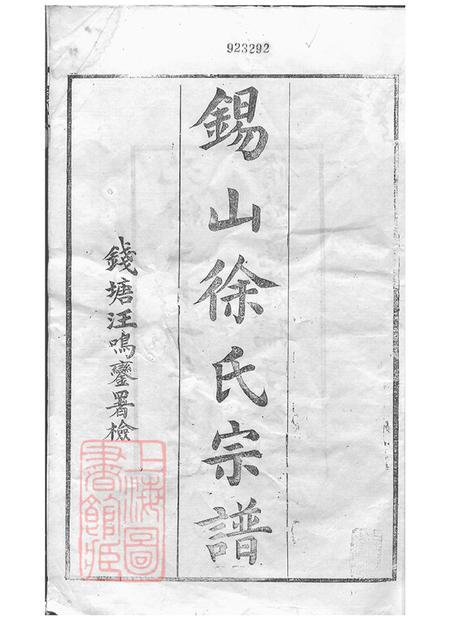 923292
錫山徐氏宗譜
錢塘汪鳴鑾署檢
上海圖
書館藏